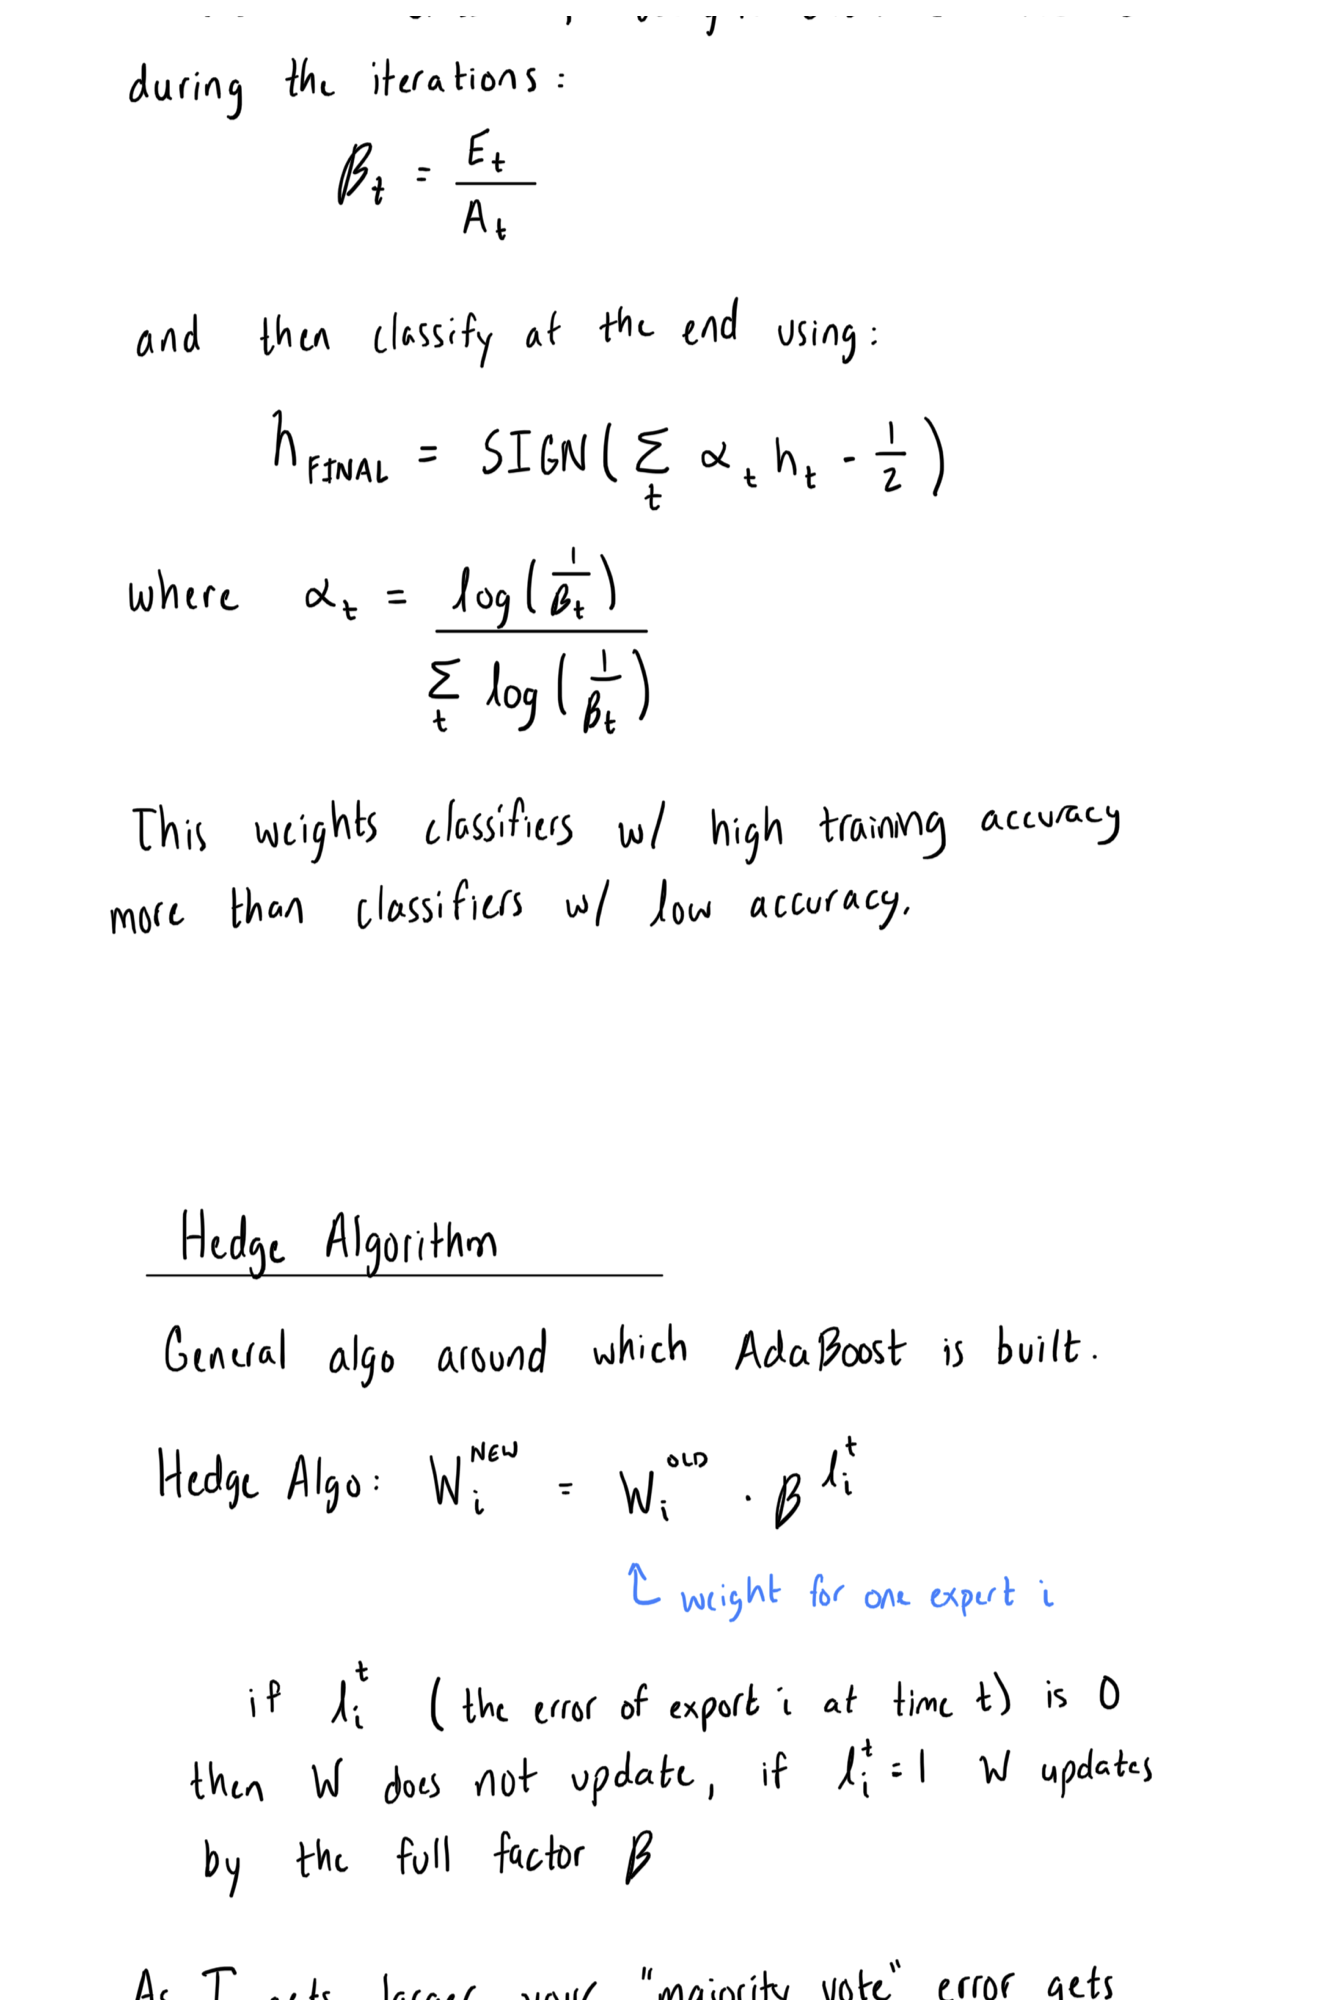 during the iterations:
βt = Et / At
and then classify at the end using:
hFINAL = SIGN( Σt αt ht - 1/2 )
where αt = log(1/βt) / Σt log(1/βt)
This weights classifiers w/ high training accuracy
more than classifiers w/ low accuracy.
Hedge Algorithm
General algo around which AdaBoost is built.
Hedge Algo: Wi^NEW = Wi^OLD · β^li^t
weight for one expert i
if li^t (the error of export i at time t) is 0
then W does not update, if li^t = 1 W updates
by the full factor β
As T gets larger your "majority vote" error gets